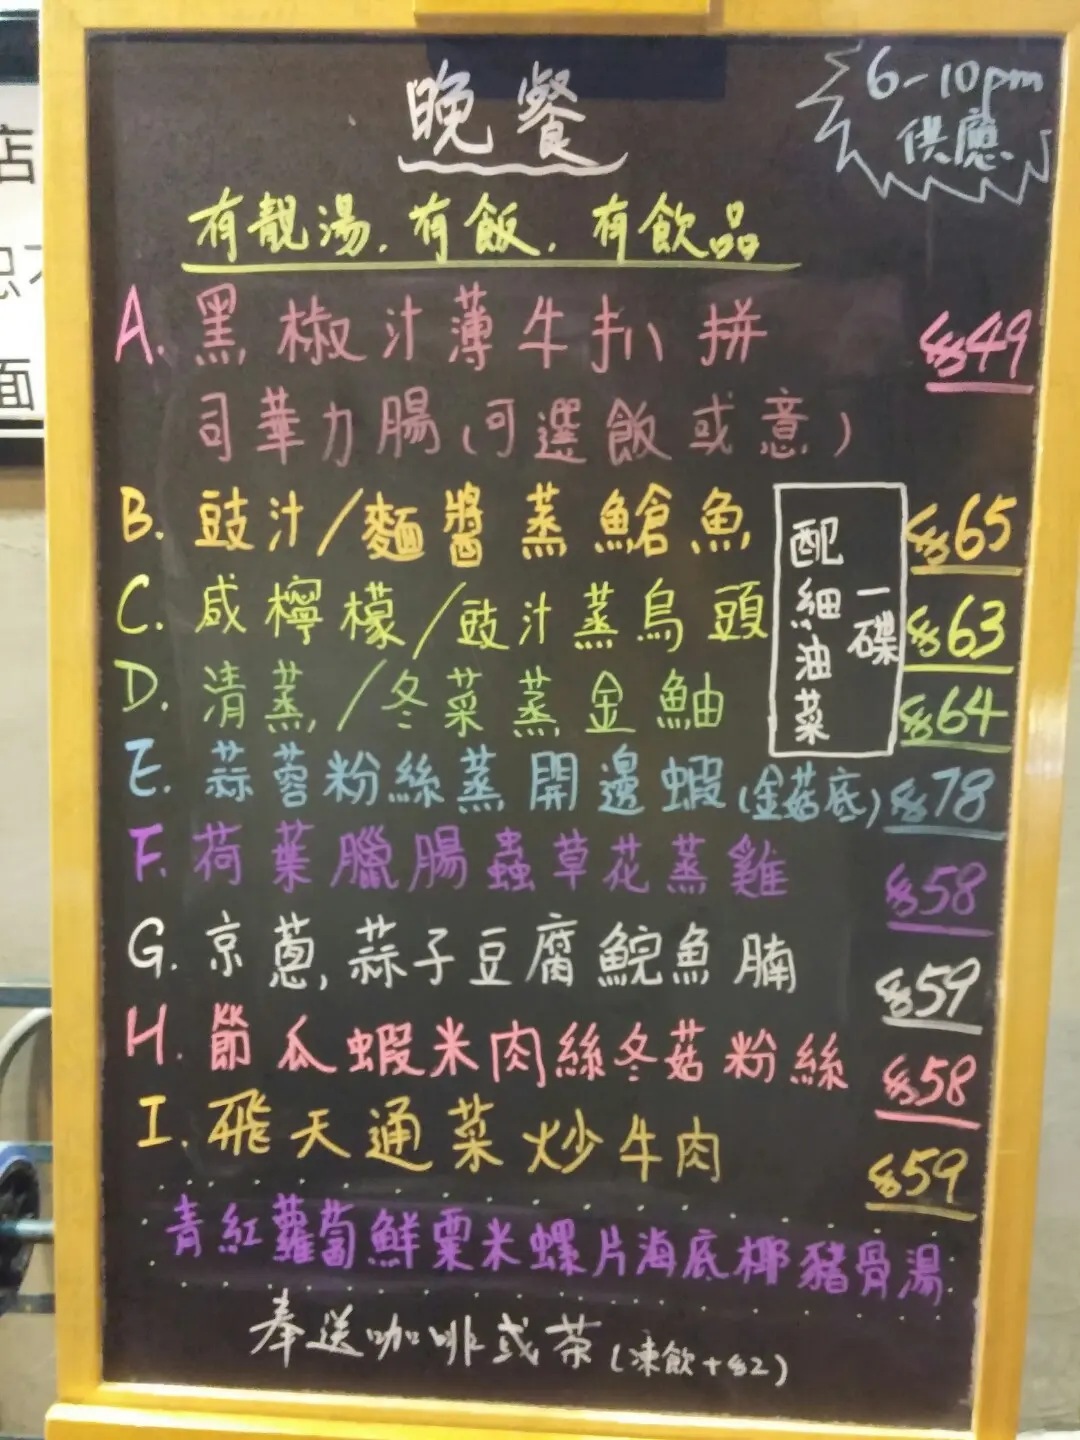 晚餐
6-10pm
供應
有靚湯.有飯.有飲品
A. 黑椒汁薄牛扒拼 $49
司華力腸(可選飯或意)
B. 豉汁/麵醬蒸鯧魚 $65
C. 咸檸檬/豉汁蒸烏頭 $63
D. 清蒸/冬菜蒸金鮋 $64
配細油菜
一碟
E. 蒜蓉粉絲蒸開邊蝦(金菇底) $78
F. 荷葉臘腸蟲草花蒸雞 $58
G. 京蔥,蒜子豆腐鯇魚腩 $59
H. 節瓜蝦米肉絲冬菇粉絲 $58
I. 飛天通菜炒牛肉 $59
青紅蘿蔔鮮粟米螺片海底椰豬骨湯
奉送咖啡或茶(凍飲+$2)
店
面